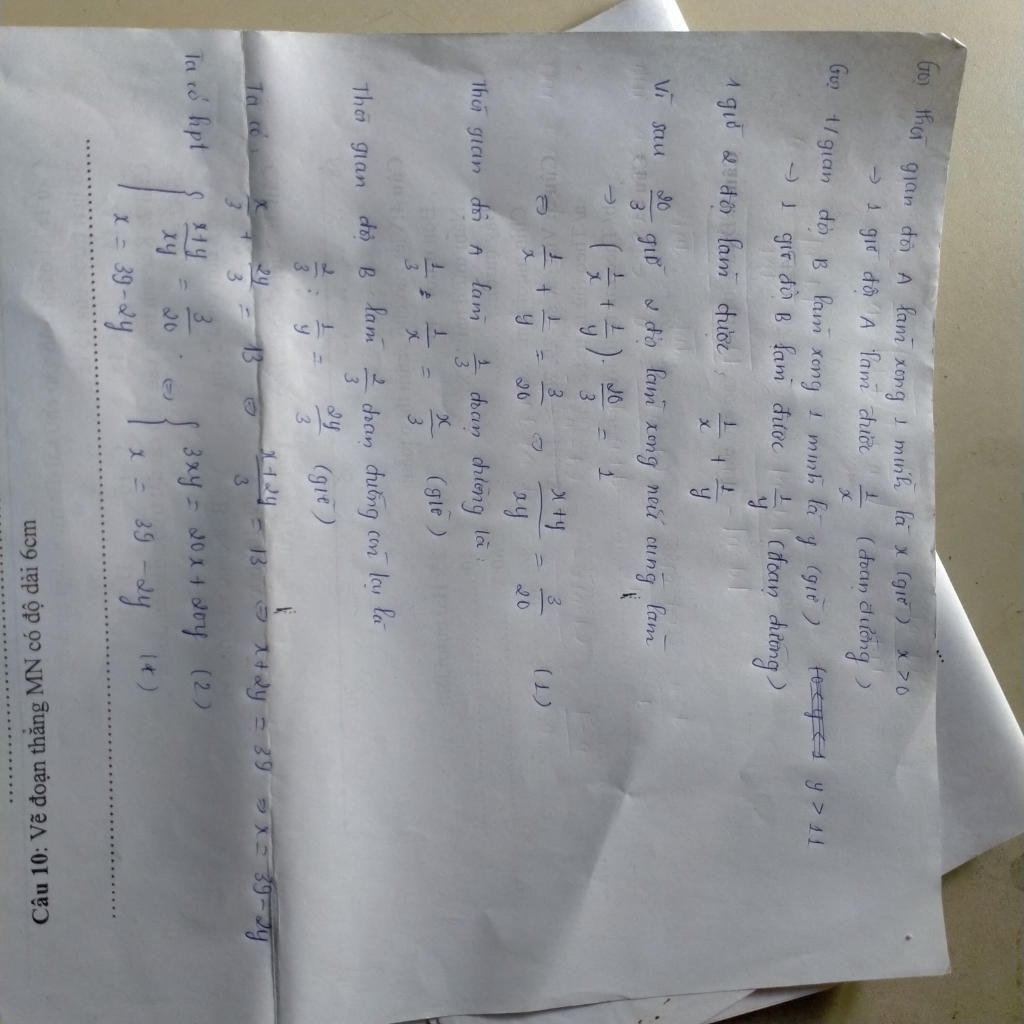 Gọi thời gian đội A làm xong 1 mình là x (giờ) x > 0
→ 1 giờ đội A làm được 1/x (đoạn đường)
Gọi t/gian đội B làm xong 1 mình là y (giờ) y > 11
→ 1 giờ đội B làm được 1/y (đoạn đường)
1 giờ 2 đội làm được: 1/x + 1/y
Vì sau 20/3 giờ 2 đội làm xong nếu cùng làm
→ (1/x + 1/y) . 20/3 = 1
⇔ 1/x + 1/y = 3/20 ⇔ x+y/xy = 3/20 (1)
Thời gian đội A làm 1/3 đoạn đường là:
1/3 : 1/x = x/3 (giờ)
Thời gian đội B làm 2/3 đoạn đường còn lại là
2/3 : 1/y = 2y/3 (giờ)
Ta có: x/3 + 2y/3 = 13 ⇔ x+2y/3 = 13 ⇒ x+2y = 39 ⇒ x = 39-2y
Ta có hpt { x+y/xy = 3/20 ⇔ { 3xy = 20x + 20y (2)
x = 39-2y x = 39 - 2y (*)
Câu 10: Vẽ đoạn thẳng MN có độ dài 6cm